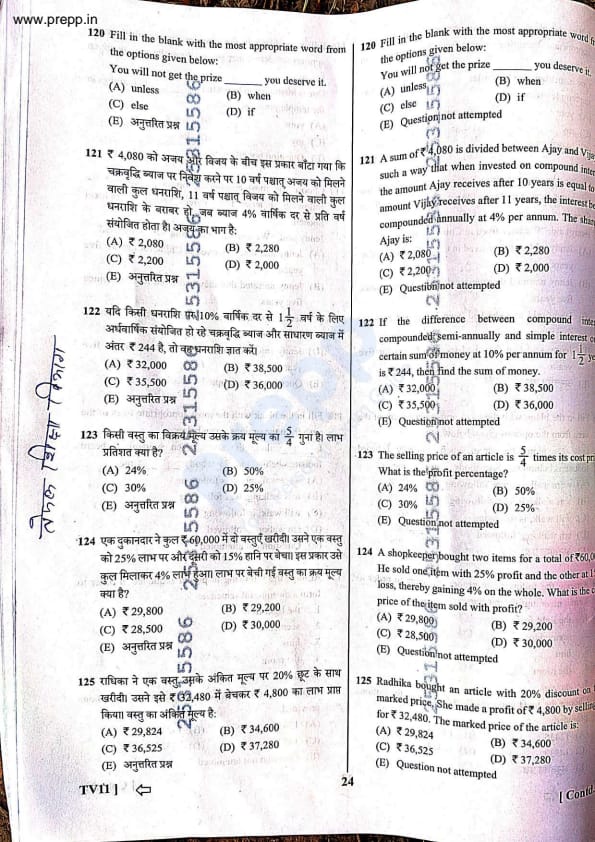 www.prepp.in
120 Fill in the blank with the most appropriate word from
the options given below:
You will not get the prize _______ you deserve it.
(A) unless (B) when
(C) else (D) if
(E) अनुत्तरित प्रश्न
121 ₹ 4,080 को अजय और विजय के बीच इस प्रकार बाँटा गया कि
चक्रवृद्धि ब्याज पर निवेश करने पर 10 वर्ष पश्चात् अजय को मिलने
वाली कुल धनराशि, 11 वर्ष पश्चात् विजय को मिलने वाली कुल
धनराशि के बराबर हो, जब ब्याज 4% वार्षिक दर से प्रति वर्ष
संयोजित होता है। अजय का भाग है:
(A) ₹ 2,080 (B) ₹ 2,280
(C) ₹ 2,200 (D) ₹ 2,000
(E) अनुत्तरित प्रश्न
122 यदि किसी धनराशि पर 10% वार्षिक दर से 1 1/2 वर्ष के लिए
अर्धवार्षिक संयोजित हो रहे चक्रवृद्धि ब्याज और साधारण ब्याज में
अंतर ₹ 244 है, तो वह धनराशि ज्ञात करें।
(A) ₹ 32,000 (B) ₹ 38,500
(C) ₹ 35,500 (D) ₹ 36,000
(E) अनुत्तरित प्रश्न
123 किसी वस्तु का विक्रय मूल्य उसके क्रय मूल्य का 5/4 गुना है। लाभ
प्रतिशत क्या है?
(A) 24% (B) 50%
(C) 30% (D) 25%
(E) अनुत्तरित प्रश्न
124 एक दुकानदार ने कुल ₹ 60,000 में दो वस्तुएँ खरीदी। उसने एक वस्तु
को 25% लाभ पर और दूसरी को 15% हानि पर बेचा। इस प्रकार उसे
कुल मिलाकर 4% लाभ हुआ। लाभ पर बेची गई वस्तु का क्रय मूल्य
क्या है?
(A) ₹ 29,800 (B) ₹ 29,200
(C) ₹ 28,500 (D) ₹ 30,000
(E) अनुत्तरित प्रश्न
125 राधिका ने एक वस्तु उसके अंकित मूल्य पर 20% छूट के साथ
खरीदी। उसने इसे ₹ 32,480 में बेचकर ₹ 4,800 का लाभ प्राप्त
किया। वस्तु का अंकित मूल्य है:
(A) ₹ 29,824 (B) ₹ 34,600
(C) ₹ 36,525 (D) ₹ 37,280
(E) अनुत्तरित प्रश्न
TV11 ]
24
120 Fill in the blank with the most appropriate word
the options given below:
You will not get the prize _______ you deserve it.
(A) unless (B) when
(C) else (D) if
(E) Question not attempted
121 A sum of ₹ 4,080 is divided between Ajay and
such a way that when invested on compound
the amount Ajay receives after 10 years is equal to
amount Vijay receives after 11 years, the interest
compounded annually at 4% per annum. The
Ajay is:
(A) ₹ 2,080 (B) ₹ 2,280
(C) ₹ 2,200 (D) ₹ 2,000
(E) Question not attempted
122 If the difference between compound
compounded semi-annually and simple interest
certain sum of money at 10% per annum for 1 1/2
is ₹ 244, then find the sum of money.
(A) ₹ 32,000 (B) ₹ 38,500
(C) ₹ 35,500 (D) ₹ 36,000
(E) Question not attempted
123 The selling price of an article is 5/4 times its cost
What is the profit percentage?
(A) 24% (B) 50%
(C) 30% (D) 25%
(E) Question not attempted
124 A shopkeeper bought two items for a total of
He sold one item with 25% profit and the other at
loss, thereby gaining 4% on the whole. What is the
price of the item sold with profit?
(A) ₹ 29,800 (B) ₹ 29,200
(C) ₹ 28,500 (D) ₹ 30,000
(E) Question not attempted
125 Radhika bought an article with 20% discount on
marked price. She made a profit of ₹ 4,800 by
for ₹ 32,480. The marked price of the article is:
(A) ₹ 29,824 (B) ₹ 34,600
(C) ₹ 36,525 (D) ₹ 37,280
(E) Question not attempted